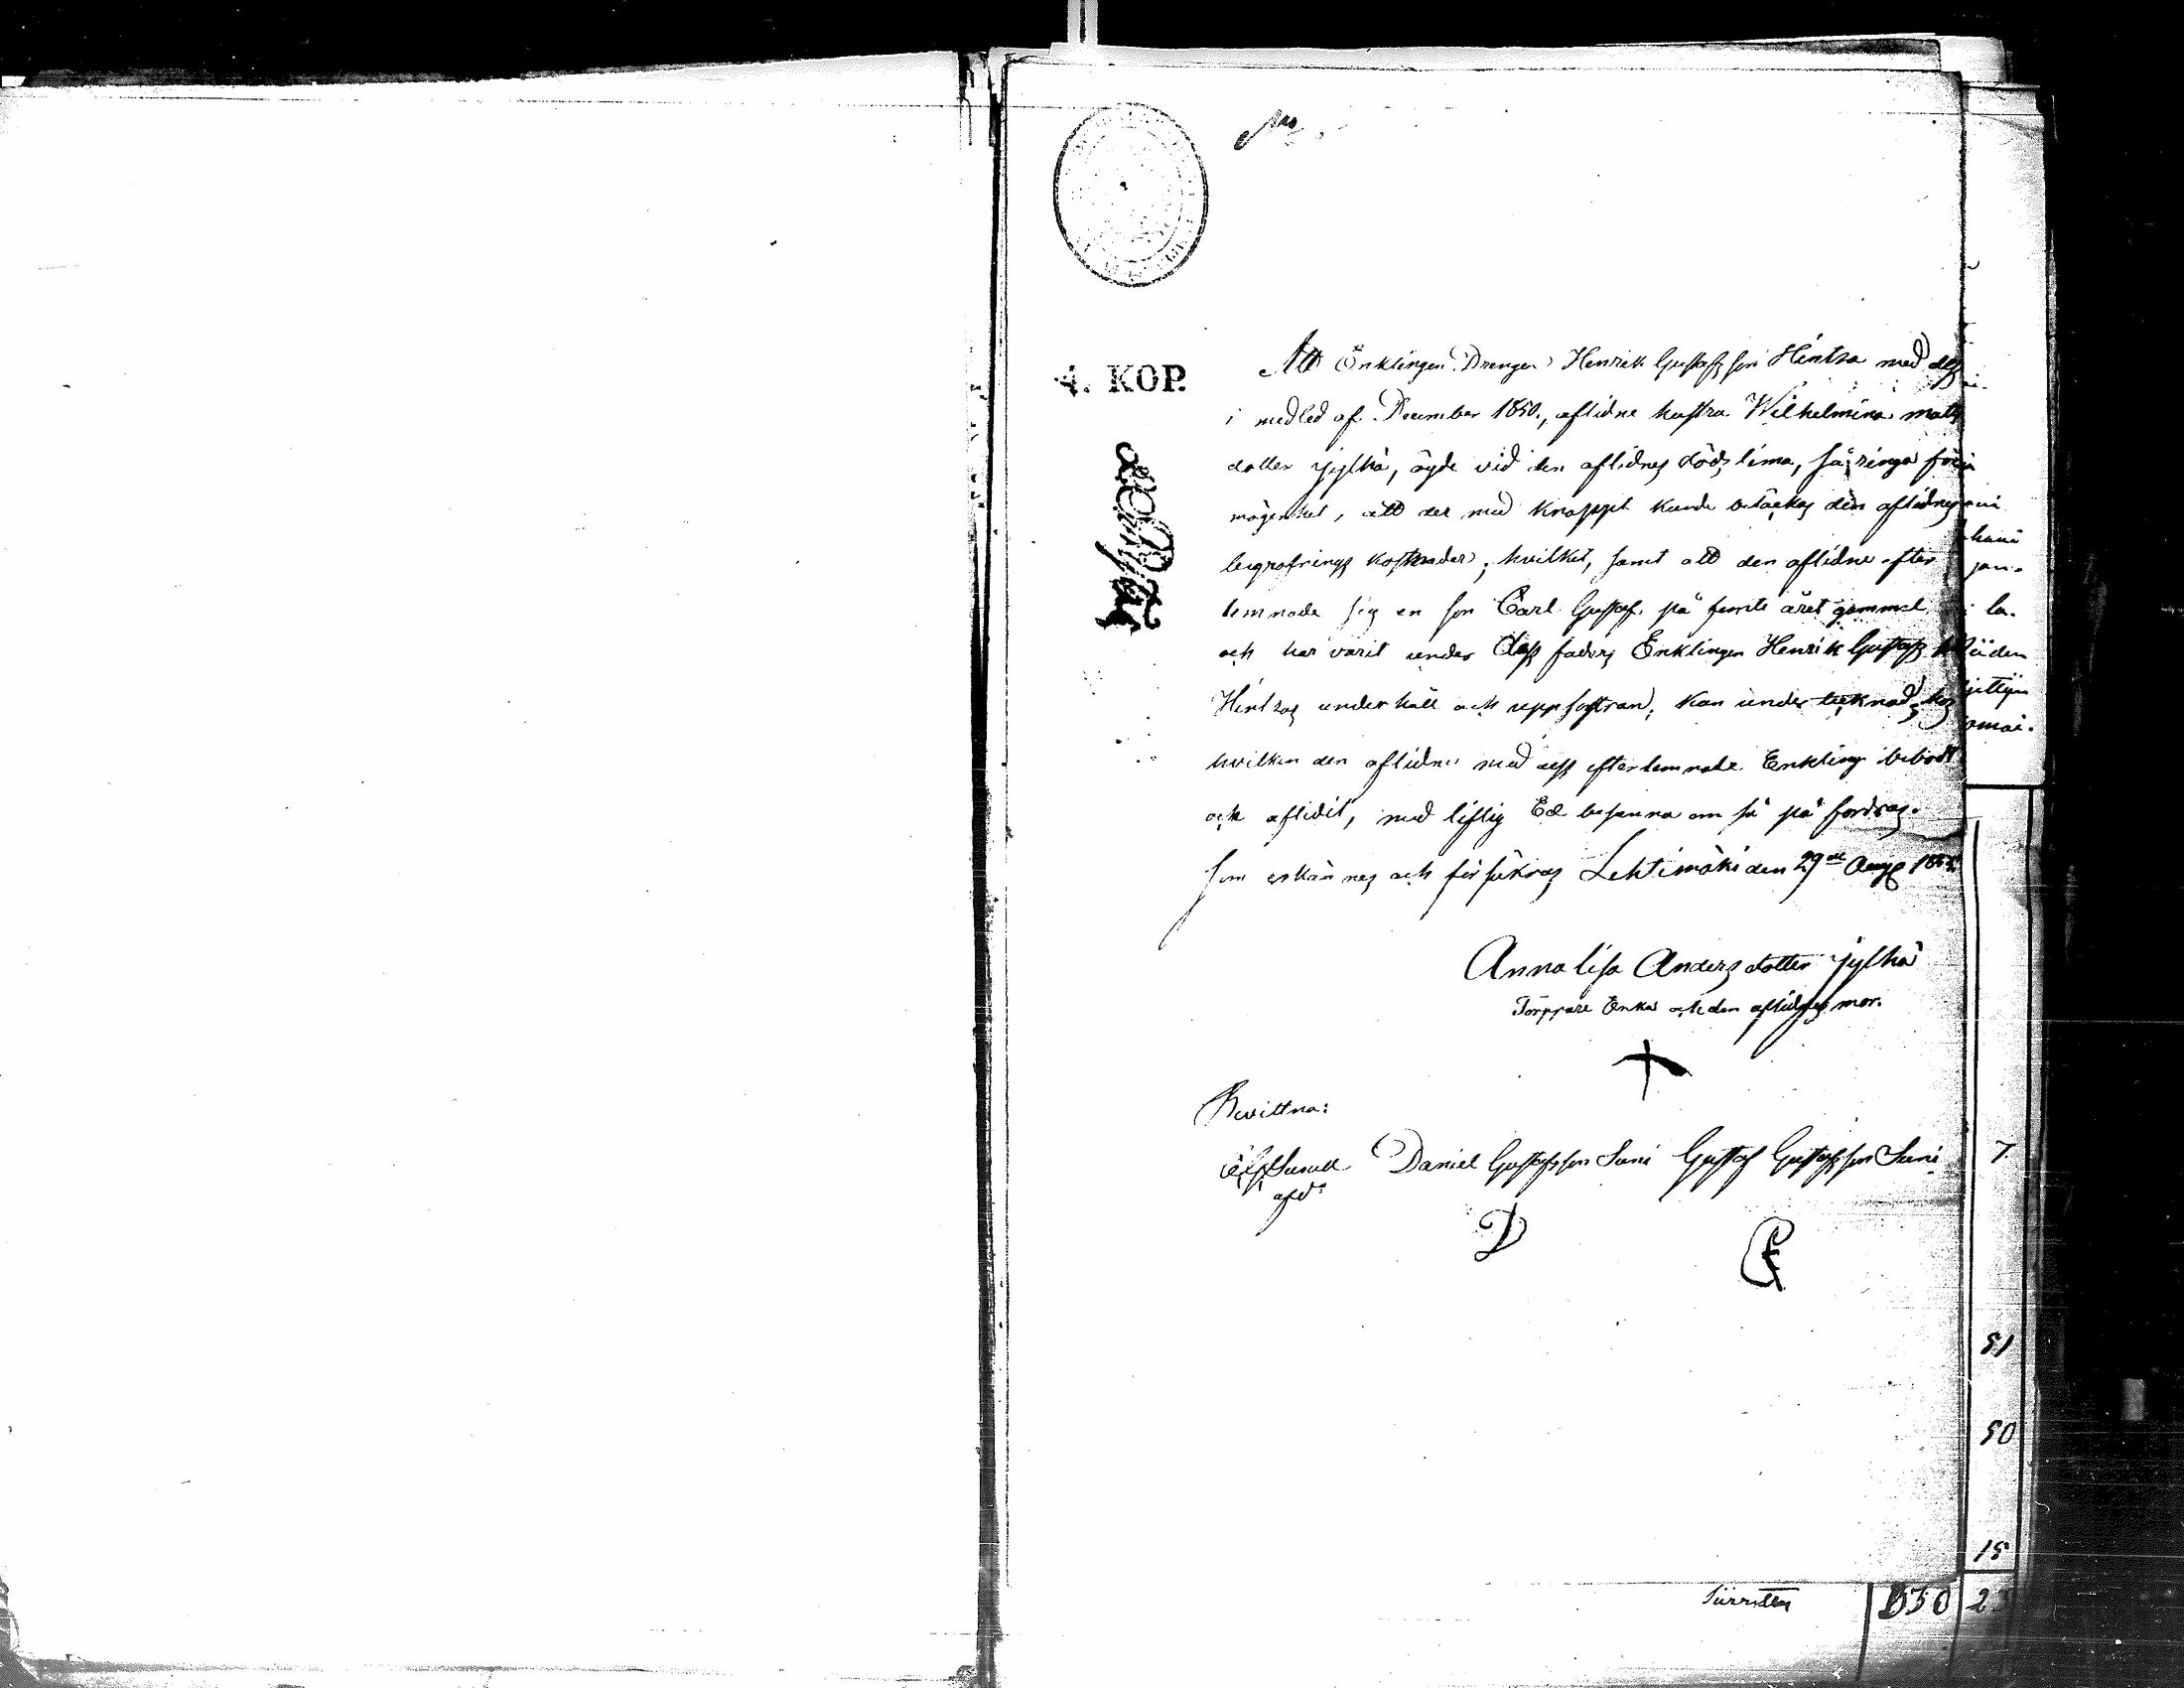 No
4. KOP.
Att Enklingen Drengen Henrik Gustafsson Hintsa med dess
i medled af December 1850., aflidne hustru Wilhelmina Mats
dotter Jylhä, ägde vid den aflidnes dödstima, så ringa för
mögenhet, att der med knappt kunde betäckas den aflidnes
begrafnings kostnader; hvilket, samt att den aflidne efter
lemnade sig en son Carl Gustaf, på femte året gammal
och har varit under dess faders Enklingen Henrik Gustafss
Hintsas underhåll och uppfostran, kan undertecknad, hos
hvilken den aflidne med dess efterlemnade Enkling bebodt
och aflidit, med liflig Ed besanna om så på fordras.
som erkännes och försäkras Lehtimäki den 29de Aug
Anna Lisa Andersdotter Jylhä
Torppare Enka och den aflidnes mor.
Bevittna:
Daniel Gustafsson Suni Gustaf Gustafsson Suni
D
7
51
50
15
Siirrettävä
530 23